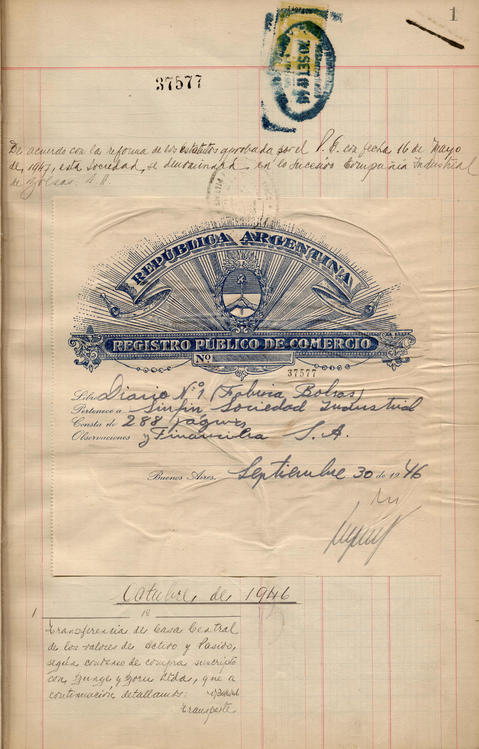 1
30 SET 1946
37577
De acuerdo con la reforma de los estatutos aprobada por el P. E. con fecha 16 de Mayo
de 1947, esta sociedad, se denominará en lo sucesivo Compañia Industrial
de Bolsas. S. A.
REPÚBLICA ARGENTINA
REGISTRO PÚBLICO DE COMERCIO
Nº
37577
Libro Diario N.º 1 (Fábrica Bolsas)
Pertenece a Sinfin Sociedad Industrial
Consta de 288 páginas
Observaciones y Financiera S. A.
Buenos Aires, Septiembre 30 de 1946
Octubre de 1946
1
Transferencia de Casa Central
de los valores de Activo y Pasivo,
según convenio de compra suscripto
con Bunge y Born Ltda, que a
continuación detallamos:
Transporte